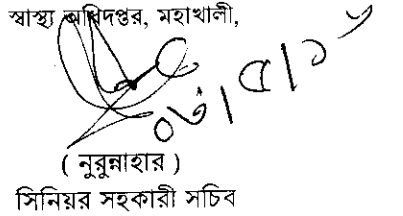 স্বাস্থ্য অধিদপ্তর, মহাখালী,
( নুরুন্নাহার )
সিনিয়র সহকারী সচিব